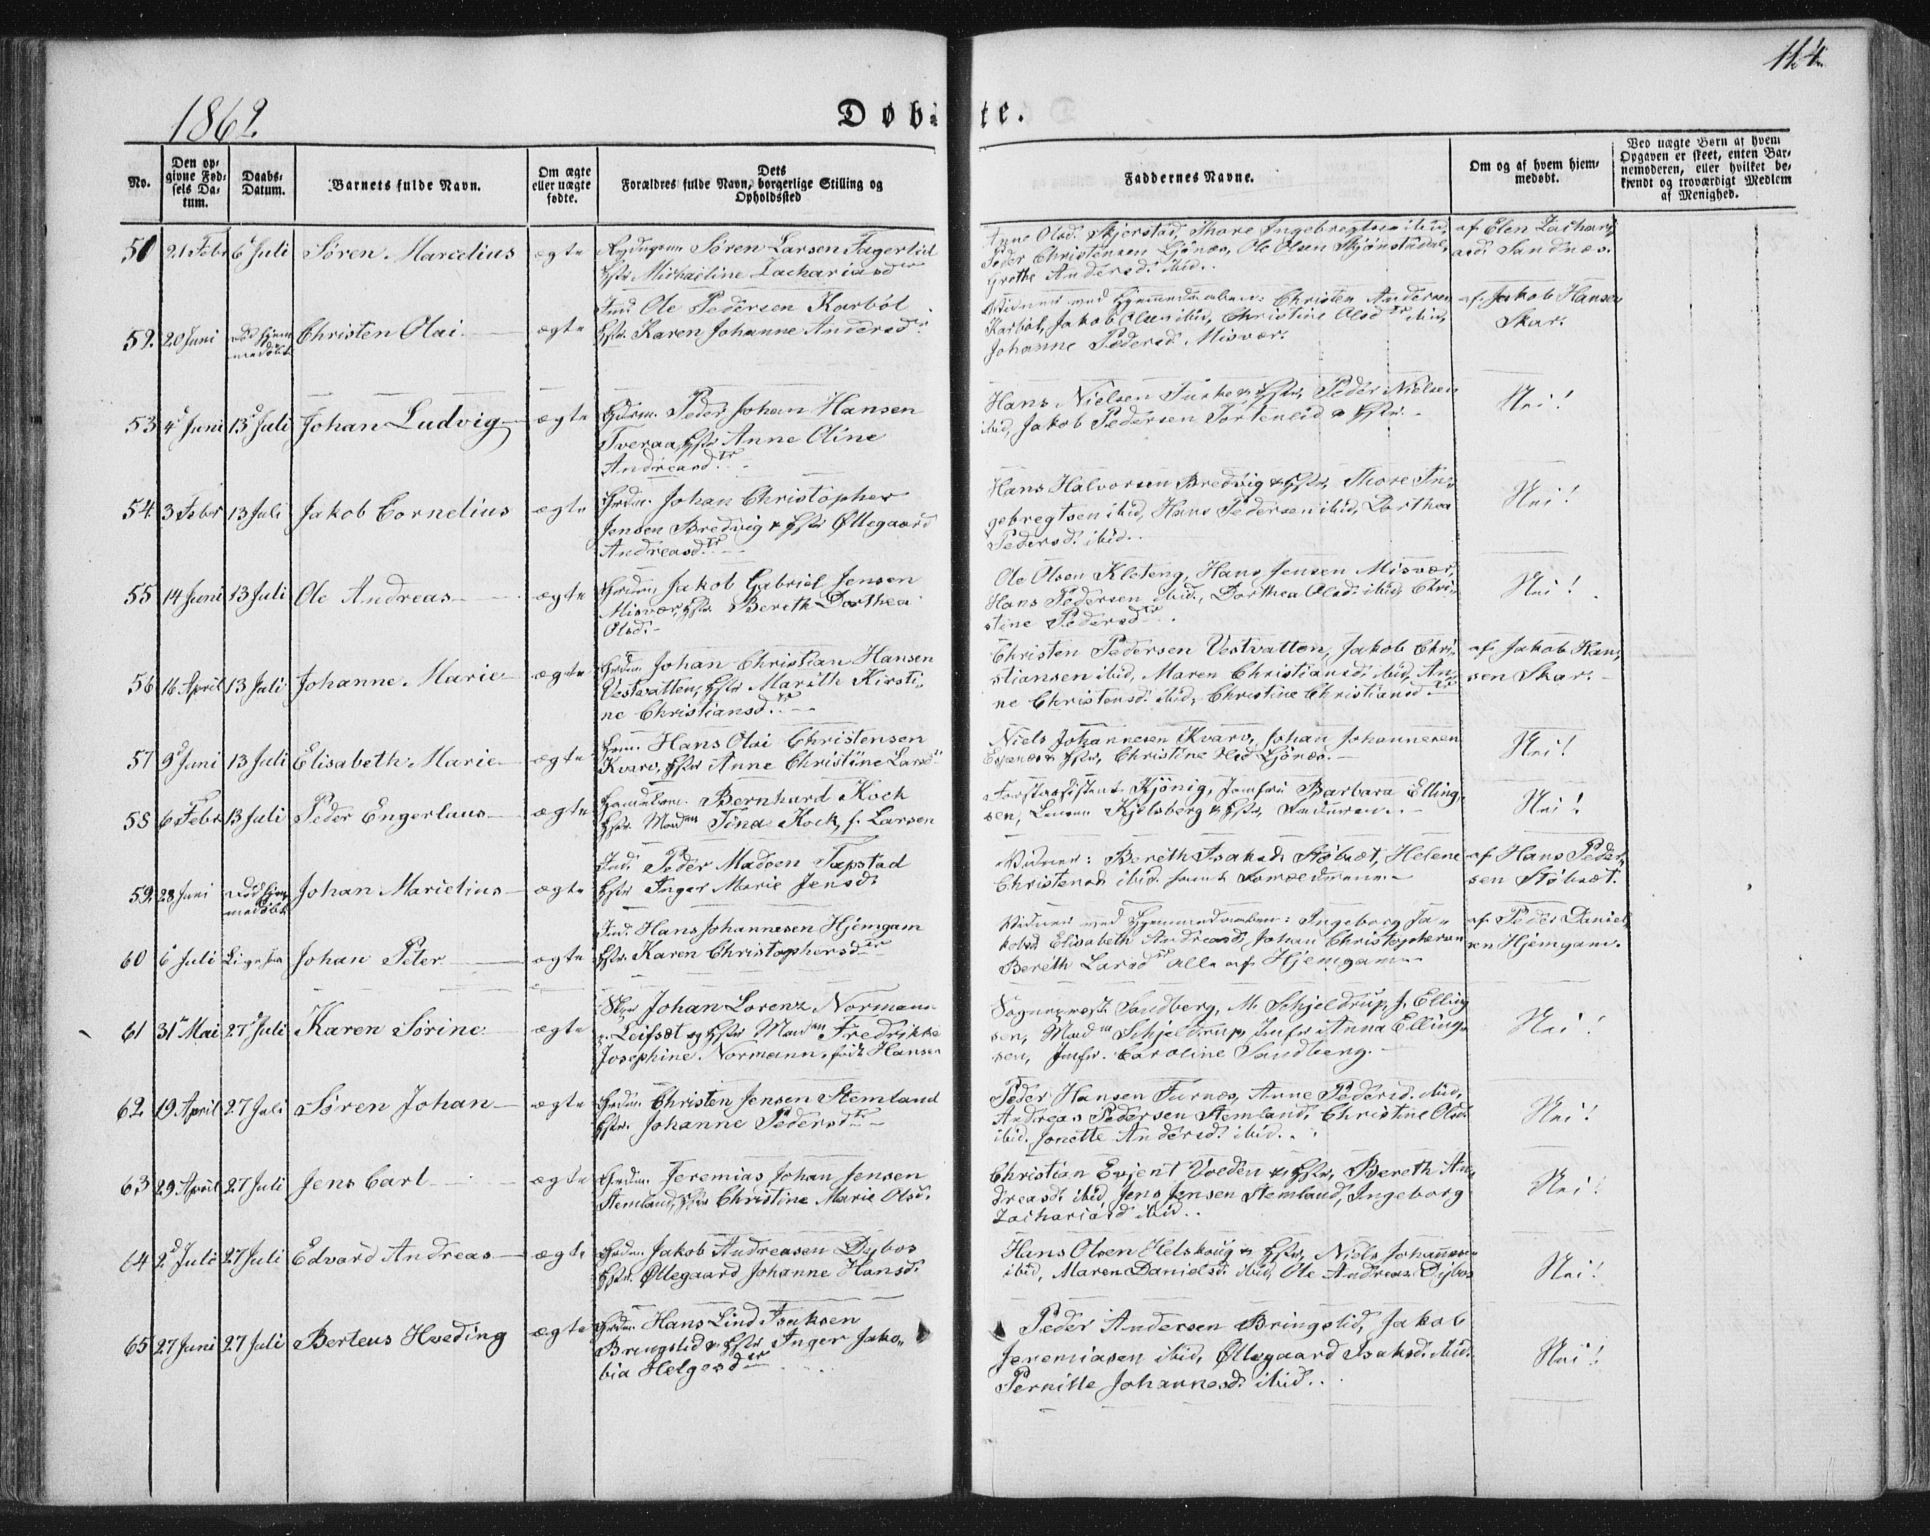 114
1862.
Døbte.
No.
Den opgivne Fødsels Datum.
Daabs-Datum.
Barnets fulde Navn.
Om ægte eller uægte fødte.
Dets Forældres fulde Navn, borgerlige Stilling og Opholdssted
Faddernes Navne.
Om og af hvem hjemmedøbt.
Ved uægte Børn af hvem Opgaven er skeet, enten Barnemoderen, eller hvilket bekjendt og troværdigt Medlem af Menighed.
51 21 Febr 6 Juli Søren Marcelius ægte
Søren Larsen Fagerlid
Hstr Michaeline Zachariasd
Anne Olsd. Skjerstad, Thore Ingebregtsen ibid,
Peder Christensen Ljönes, Ole Olsen Skjønstudal,
Grethe Andersd. ibid.
af Elen Zachari
asd. Sandnes.
52. 20 Juni Død hjem
medøbt Christen Olai ægte
Ind. Ole Pedersen Karbøl
Hstr. Karen Johanne Andersd.
Vidner med Hjemmedaaben: Christen Andersen
Karbøl, Jakob Olsen ibid, Christine Olsdtr ibid,
Johanne Pedersd. Misvær.
af Jakob Hansen
Skar.
53 4 Juni 13 Juli Johan Ludvig ægte
Grdm. Peder Johan Hansen
Tveraa, Hstr Anne Oline
Andreasdtr
Hans Nielsen & Hstr, Peder Nielsen
ibid, Jakob Pedersen Tortenlid & Hstr.
Nei!
54. 3 Febr 13 Juli Jakob Cornelius ægte
Grdm. Johan Christopher
Jensen Bredvig & Hstr Øllegaard
Andreasdtr
Hans Halvorsen Bredvig & Hstr, Thore In-
gebregtsen ibid, Hans Pedersen ibid, Dorthea
Pedersd. ibid.
Nei!
55 14 Juni 13 Juli Ole Andreas ægte
Grdm. Jakob Gabriel Jensen
Misvær, Hstr Bereth Dorthea
Olsd.
Ole Olsen Kloteng, Hans Jensen Misvær,
Hans Pedersen ibid, Dorthea Olsd. ibid, Chri-
stine Pedersdtr
Nei!
56 16 April 13 Juli Johanne Marie ægte
Grdm. Johan Christian Hansen
Vestvatten, Hstr Marith Kirsti-
ne Christiansdtr
Christen Pedersen Vestvatten, Jakob Chri-
stiansen ibid, Maren Christiansd. ibid, An-
ne Christensd. ibid, Christine Christiansdtr
af Jakob Han-
sen Skar.
57 9 Juni 13 Juli Elisabeth Marie ægte
Grdm. Hans Olai Christensen
Kvarv, Hstr Anne Christine Larsd
Niels Johannesen Kvarv, Johan Johannesen
Evjenes & Hstr, Christine Ljönes.
Nei!
58 6 Febr 13 Juli Peder Engerluus ægte
Handelsm. Bernhard Kock
Hstr. Madm Tina Kock, f. Larsen
Forstassistent Kjönig, Jomfru Barbara Elling-
sen, Lensm Kjelsberg & Hstr, Faderen.
Nei!
59. 28 Juni Død hjem
medøbt Johan Marielius ægte
Ind. Peder Madsen Tapstad
Hstr Inger Marie Jensd.
Vidner: Bereth Isaksd. Støbset, Helene
Christensd ibid. samt Forældrene.
af Hans Peder-
sen Støbset.
60 6 Juli Johan Peter ægte
Ind. Hans Johannesen Hjemgam
Hstr. Karen Christophersdtr
Vidner med Hjemmedaaben: Ingeborg Ja-
kobsd Elisabeth Andreasd, Johan Christophersen
Bereth Larsdtr alle af Hjemgam.
af Peder Daniel-
sen Hjemgam.
61 31 Mai 27 Juli Karen Sørine ægte
Johan Lorenz Normann
Leifset og Hstr Madm Fredrikke
Josephine Normann, født Hansen
Sogneprest Sandberg, M. Schjeldrup, J. Elling
sen, Madm Schjeldrup, Jmfr Anna Elling-
sen, Jmfr. Caroline Sandberg.
Nei!
62. 19 April 27 Juli Søren Johan ægte
Grdm. Christen Jensen Stemland
Hstr. Johanne Pedersdtr
Peder Hansen Furnes, Anne Pedersd. ibid,
Andreas Pedersen Stemland, Christine Olsd.
ibid. Jonette Andersd. ibid.
Nei!
63 29 April 27 Juli Jens Carl ægte
Grdm. Jeremias Johan Jensen
Stemland, Hstr Christine Marie Olsd.
Christian Evjent Voeden & Hstr, Bereth An-
dreasd. ibid, Jens Jensen Stemland, Ingeborg
Zachariasd ibid.
Nei!
64 2 Juli 27 Juli Edvard Andreas ægte
Grdm. Jakob Andreasen Dybos
Hstr. Øllegaard Johanne Hansd.
Hans Olsen Helskoug & Hstr, Niels Johannesen
ibid, Maren Danielsd. ibid, Ole Andreas. Dybos
Nei!
65 27 Juni 27 Juli Berteus Hveding ægte
Grdm. Hans Lind Isaksen
Bringslid & Hstr Inger Jako-
bia Helgesdtr
Peder Andersen Bringslid, Jakob
Jeremiasen ibid, Øllegaard Isaksd. ibid.
Pernille Johannesd. ibid.
Nei!